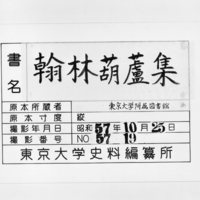 書名 翰林葫蘆集
原本所蔵者 東京大学附属図書館
原本寸度 縦
撮影年月日 昭和57年10月25日
撮影番号 NO 57 19
東京大学史料編纂所